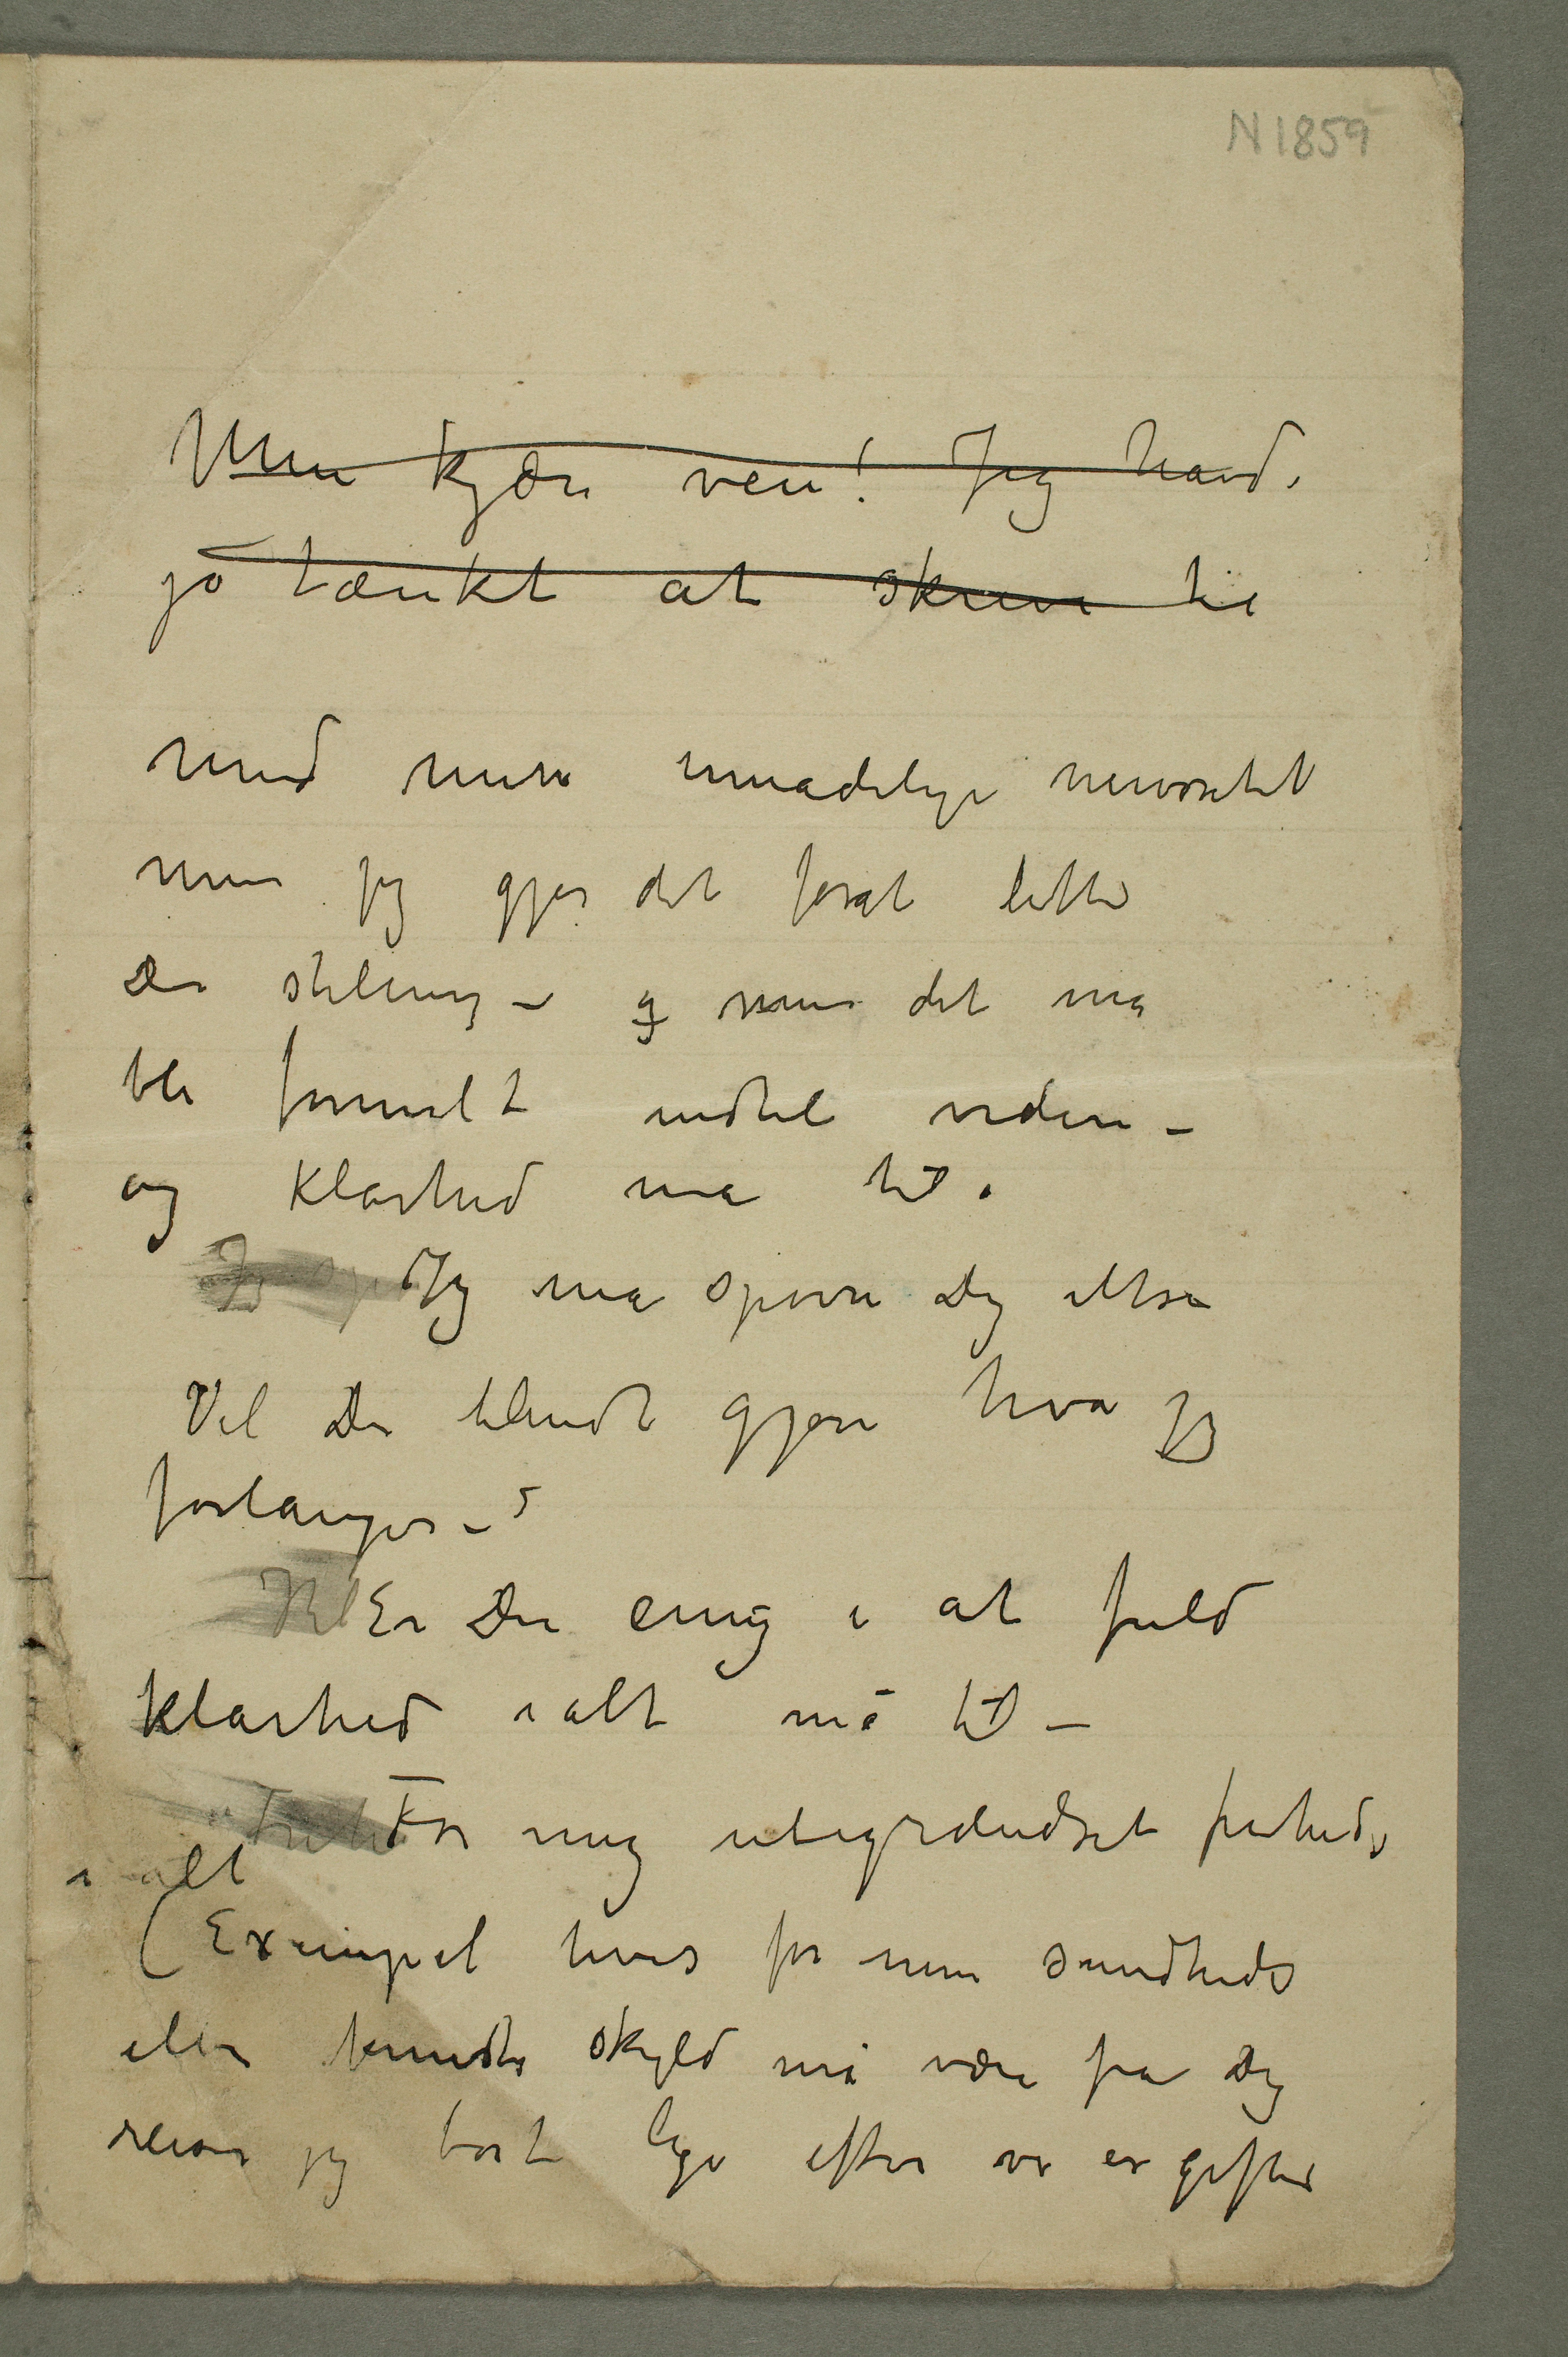 N 1859
Min kjære ven! Jeg havde
jo tænkt at skrive til
med min umådelige nervøsitet
men jeg gjør det forat lette
Din stilling – og men det må
bli formelt indtil videre –
og klarhed må til.
Jeg Jeg må spørre Dig altså
Vil Du blindt gjøre hva jeg
forlanger – ?
Vil Er Du enig i at fuld
klarhed i alt må til –
For mig ubegrændset frihed,
i alt
(Exempel hvis for min sundheds
eller kunsts skyld må være fra Dig
reiser jeg bort lige efter vi er giftet